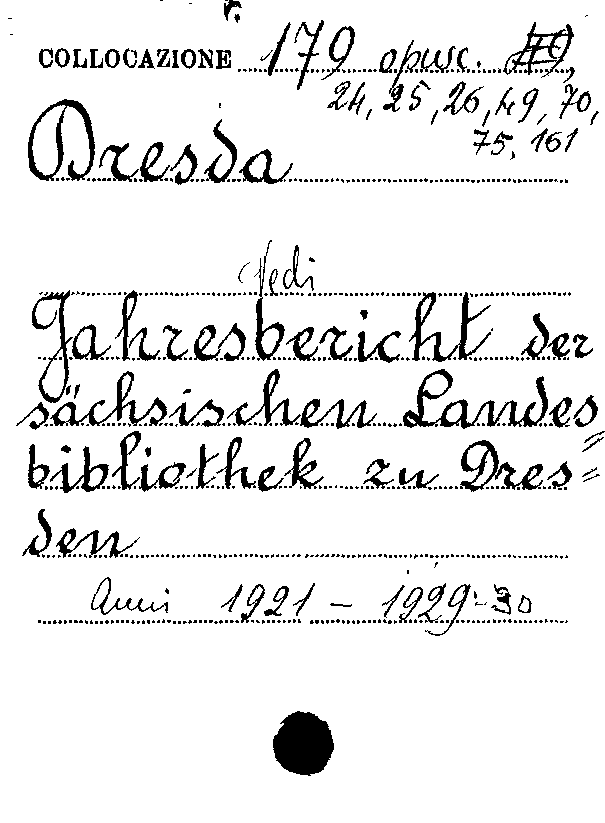 COLLOCAZIONE 179 opusc.
24, 25, 26, 49, 70,
75, 161
Dresda
Vedi
Jahresbericht der
sächsischen Landes=
bibliothek zu Dres=
den
Anni 1921 - 1929-30